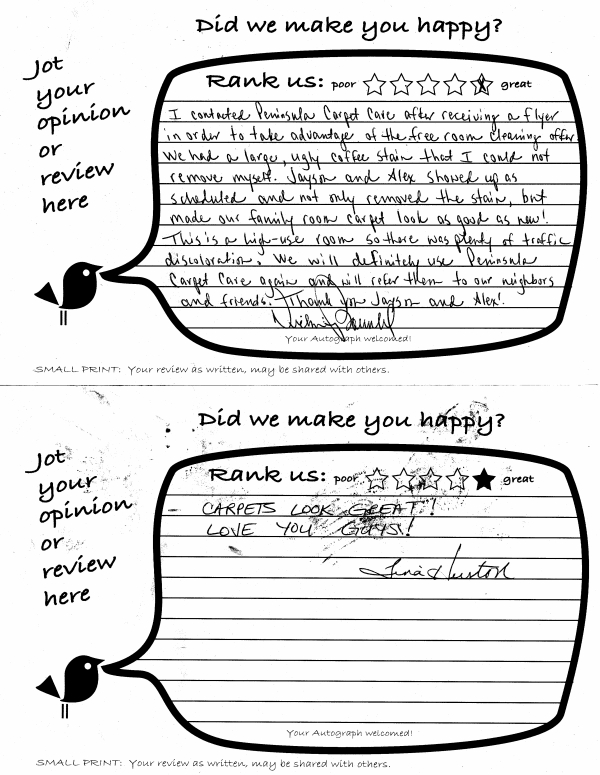 Did we make you happy?
Jot
your
opinion
or
review
here
Rank us: poor great
I contacted Peninsula Carpet Care after receiving a flyer
in order to take advantage of the free room cleaning offer.
We had a large, ugly coffee stain that I could not
remove myself. Jayson and Alex showed up as
scheduled and not only removed the stain, but
made our family room carpet look as good as new!
This is a high-use room so there was plenty of traffic
discoloration. We will definitely use Peninsula
Carpet Care again and will refer them to our neighbors
and friends. Thank you Jayson and Alex!
Your Autograph welcomed!
SMALL PRINT: Your review as written, may be shared with others.
Did we make you happy?
Jot
your
opinion
or
review
here
Rank us: poor great
CARPETS LOOK GREAT!
LOVE YOU GUYS!
Tina Huston
Your Autograph welcomed!
SMALL PRINT: Your review as written, may be shared with others.